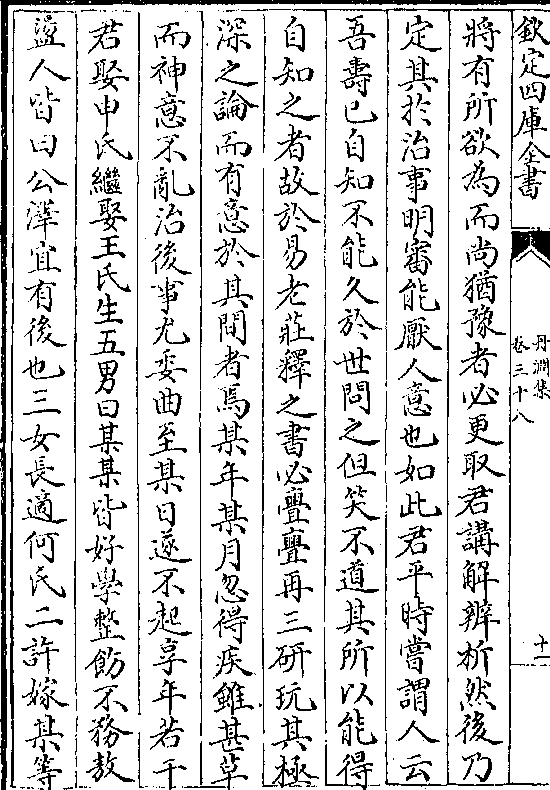 欽定四庫全書
丹淵集
卷三十八
十一
將有所欲為而尚猶豫者必更取君講解辨析然後乃
定其於治事明審能厭人意也如此君平時嘗謂人云
吾壽已自知不能久於世問之但笑不道其所以能得
自知之者故於易老莊釋之書必亹亹再三研玩其極
深之論而有意於其間者焉某年某月忽得疾雖甚草
而神意不亂治後事尤委曲至某日遂不起享年若干
君娶申氏繼娶王氏生五男曰某某皆好學整飭不務敖
盪人皆曰公澤宜有後也三女長適何氏二許嫁某等